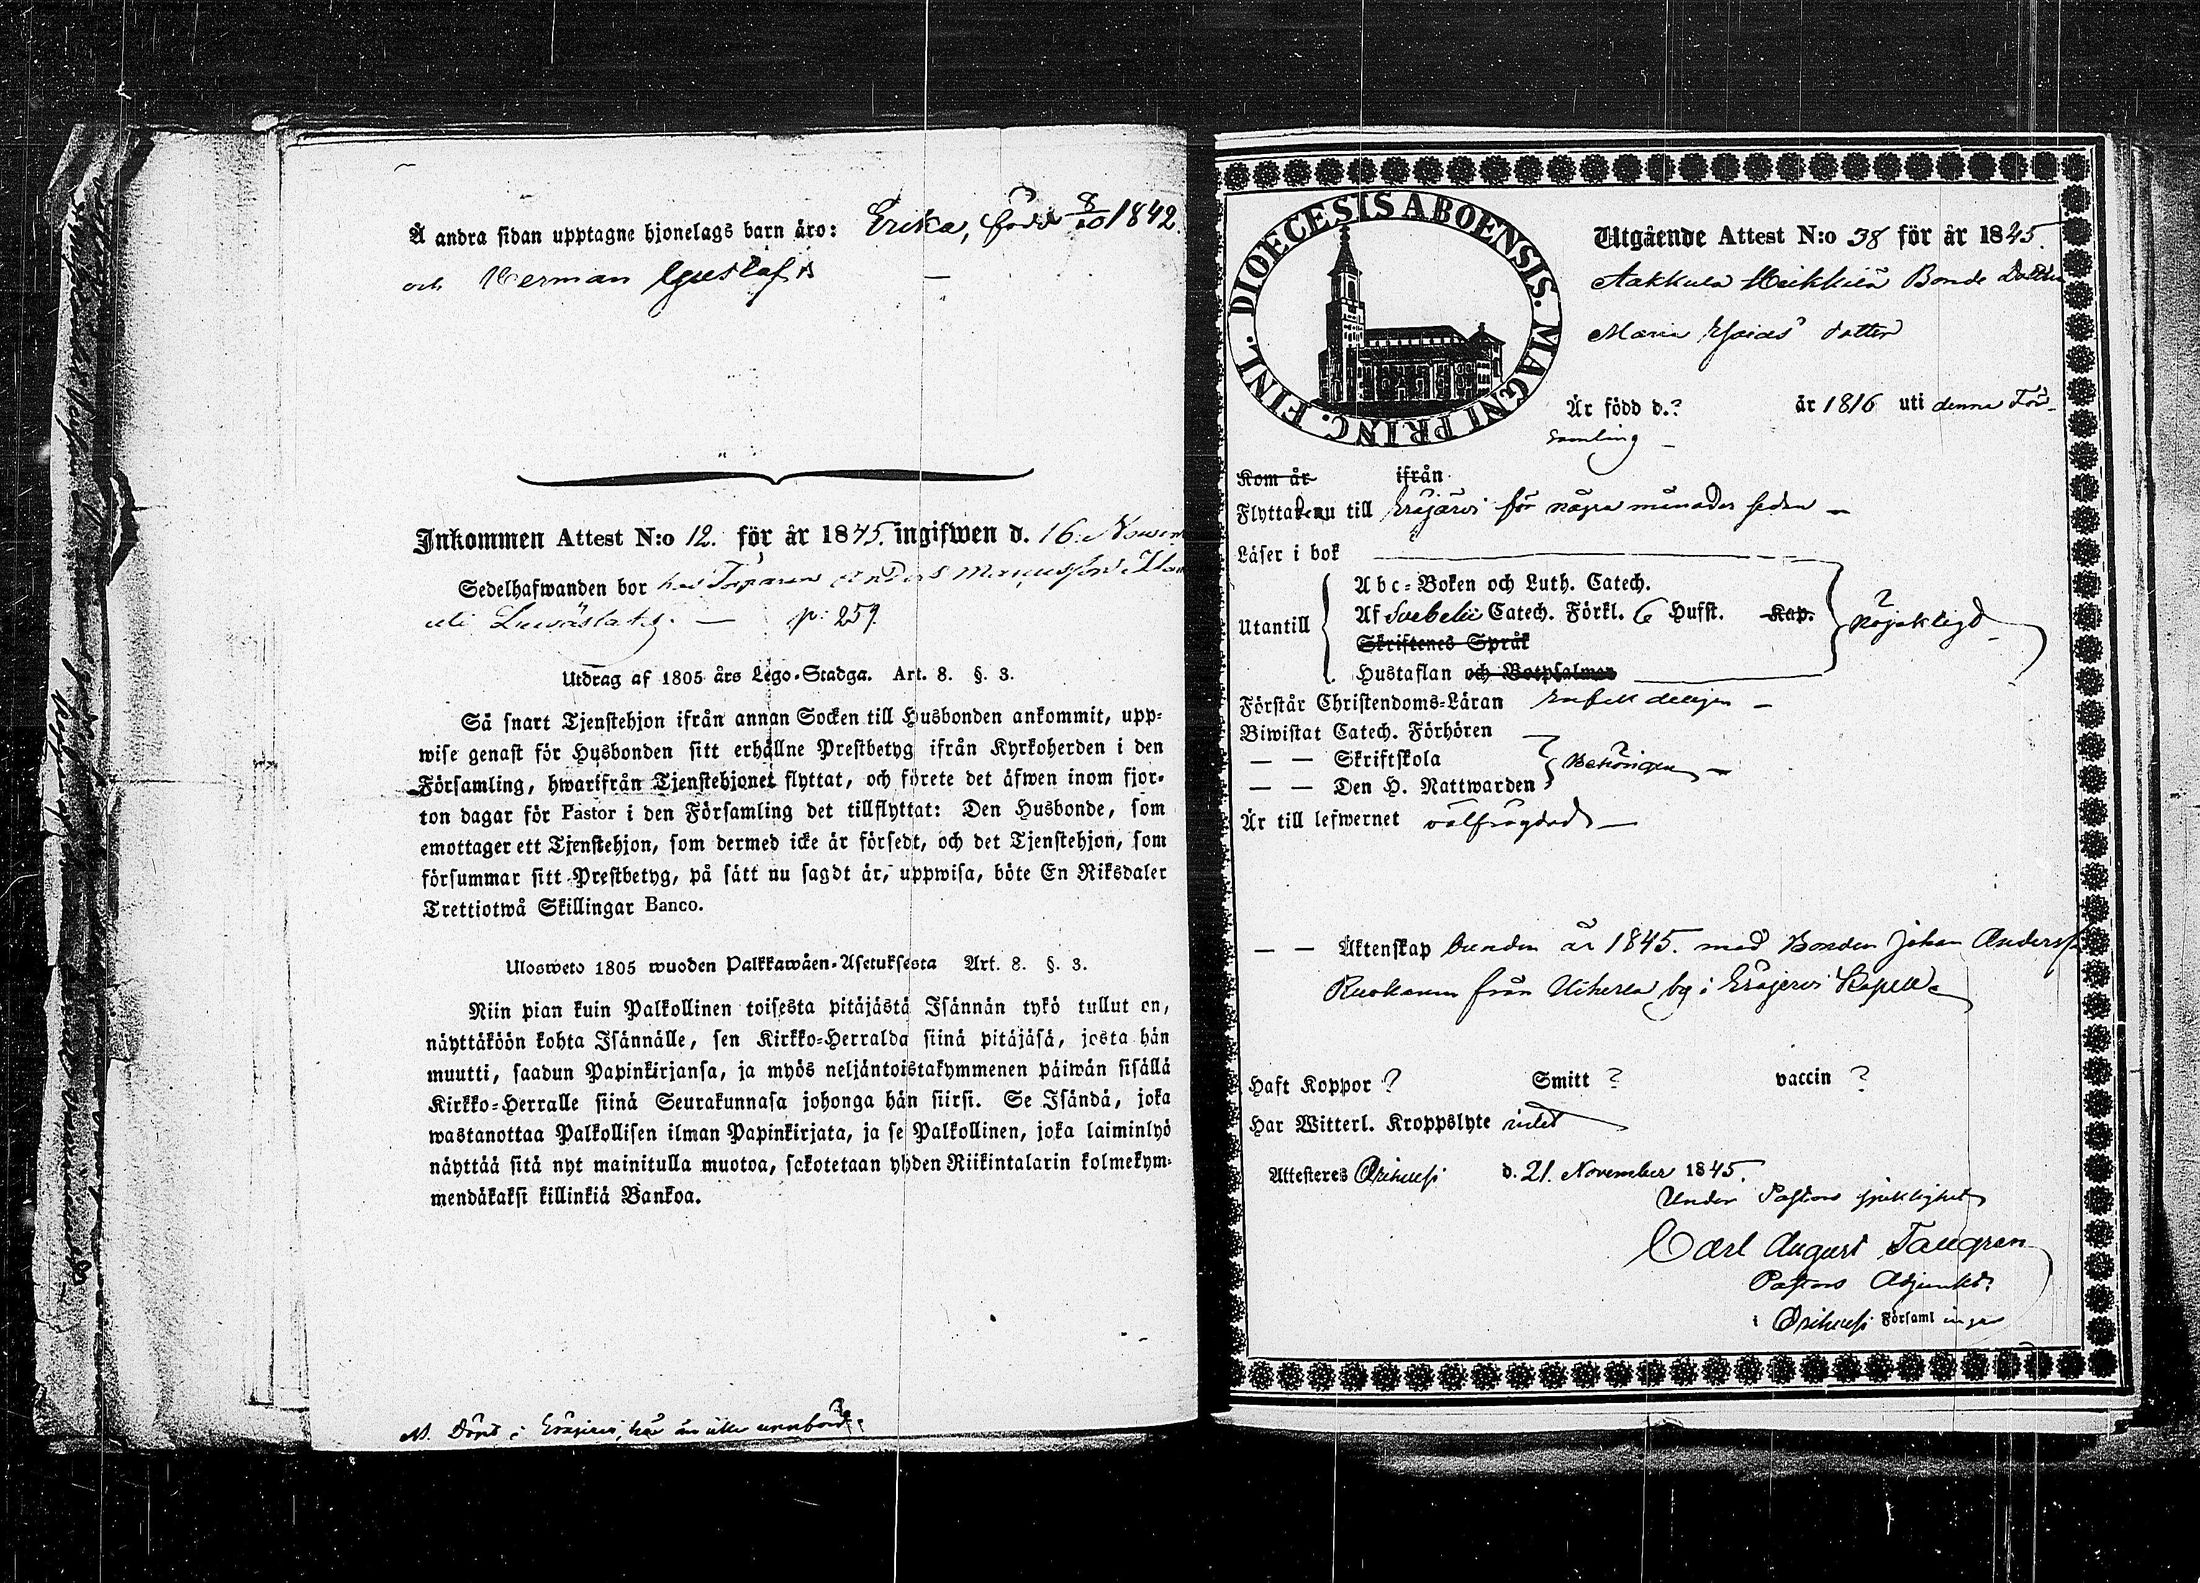 Å andra sidan upptagne hjonelags barn äro: Erika, född 8/10 1842.
och Herman Gustaf
Inkommen Attest N:o 12. för år 1845. ingifwen d. 16. Novem
Sedelhafwanden bor hos Torparen Anders
uti p. 259.
Utdrag af 1805 års Lego-Stadga. Art. 8. §. 3.
Så snart Tjenstehjon ifrån annan Socken till Husbonden ankommit, upp-
wise genast för Husbonden sitt erhållne Prestbetyg ifrån Kyrkoherden i den
Församling, hwarifrån Tjenstehjonet flyttat, och förete det äfwen inom fjor-
ton dagar för Pastor i den Församling det tillflyttat: Den Husbonde, som
emottager ett Tjenstehjon, som dermed icke är försedt, och det Tjenstehjon, som
försummar sitt Prestbetyg, på sätt nu sagdt är, uppwisa, böte En Riksdaler
Trettiotwå Skillingar Banco.
Ulosweto 1805 wuoden Palkkawäen-Asetuksesta Art. 8. §. 3.
Niin pian kuin Palkollinen toisesta pitäjästä Isännän tykö tullut on,
näyttäköön kohta Isännälle, sen Kirkko-Herralda siinä pitäjäsä, josta hän
muutti, saadun Papinkirjansa, ja myös neljäntoistakymmenen päiwän sisällä
Kirkko-Herralle siinä Seurakunnasa johonga hän siirsi. Se Isändä, joka
wastanottaa Palkollisen ilman Papinkirjata, ja se Palkollinen, joka laiminlyö
näyttää sitä nyt mainitulla muotoa, sakotetaan yhden Riikintalarin kolmekym-
mendäkaksi killinkiä Bankoa.
DIOECESIS ABOENSIS. MAGNI PRINC. FINL.
Utgående Attest N:o 38 för år 1845.
Aakkula Heikkilä Bonde Dotter
Maria Esaias dotter
Är född d. ? år 1816 uti denna För-
samling
Kom år ifrån
Flyttade nu till Eräjärvi för några månader sedan
Läser i bok
Utantill
Abc-Boken och Luth. Catech.
Af Svebelii Catech. Förkl. 6 Hufst. Kap.
Skriftenes Språk
Hustaflan och Botpsalmer
nöjaktigt
Förstår Christendoms-Läran enfaldeligen
Biwistat Catech. Förhören
— — Skriftskola
— — Den H. Nattwarden
behörigen
Är till lefwernet välfrägdad
— — Äktenskap bunden år 1845. med Bonden Johan Anders
från Uiherla by i Eräjervi Kapell
Haft Koppor ? Smitt ? vaccin ?
Har Witterl. Kroppslyte intet
Attesteres Orihvesi d. 21. November 1845.
Under Pastors sjuklighet
Carl August Tangren
Pastors Adjunct
i Orihvesi Församlingen